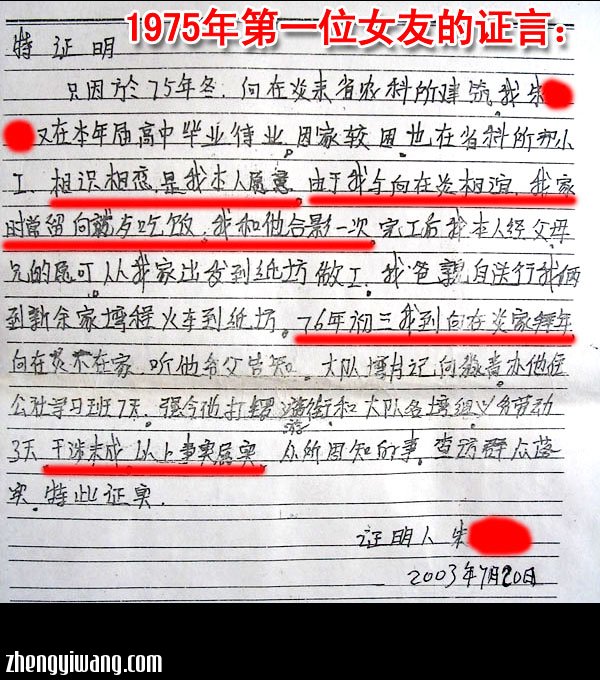 1975年第一位女友的证言：
特 证 明
只因於75年冬.向在炎来省农科所建筑.我朱
又在本年届高中毕业待业.因家较困也在省科所邦小
工.相识相恋是我本人愿意.由于我与向在炎相谊.我家
时常留向就与吃饭.我和他合影一次.完工后我本人经父母
兄的愿可从我家出发到纸坊做工.我爸亲自送行我俩
到新余家塆程火车到纸坊.76年初三我到向在炎家拜年
向在炎不在家.听他爷父告知.大队塆月记向 办他住
公社学习班7天.强令他打锣游街和大队各塆组义务劳动
3天.干涉未成.以上事实属实.众所周知的事.查访群众落
实.特此证实.
证明人 朱
2003年7月20日
zhengyiwang.com